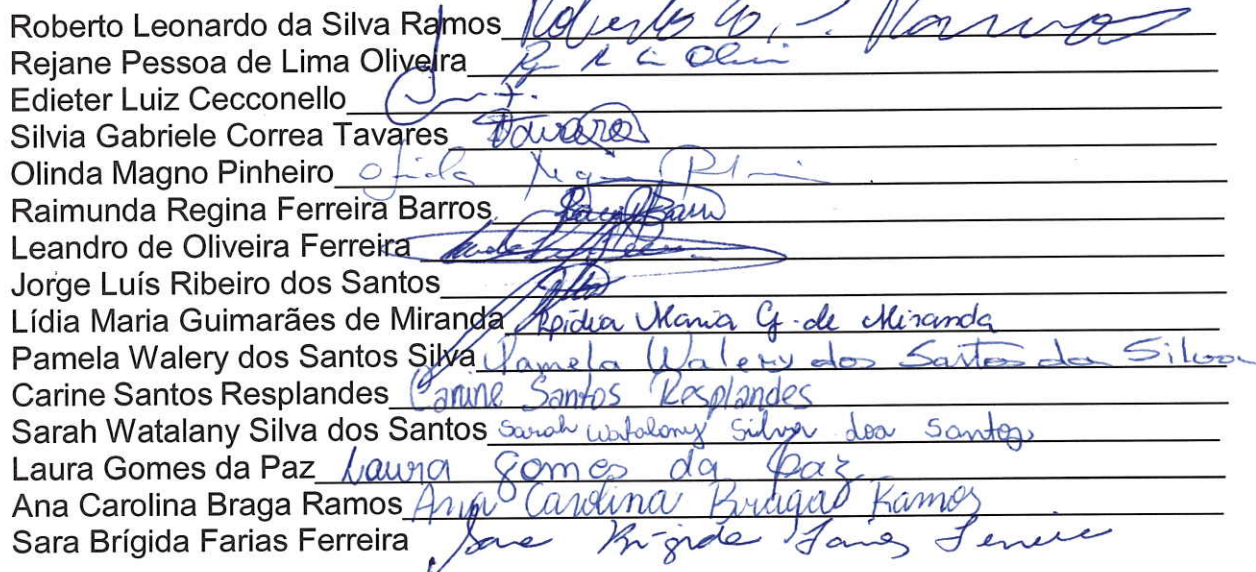 Roberto Leonardo da Silva Ramos Roberto Ramos
Rejane Pessoa de Lima Oliveira
Edieter Luiz Cecconello
Silvia Gabriele Correa Tavares Tavares
Olinda Magno Pinheiro
Raimunda Regina Ferreira Barros
Leandro de Oliveira Ferreira
Jorge Luís Ribeiro dos Santos
Lídia Maria Guimarães de Miranda Lídia Maria G. de Miranda
Pamela Walery dos Santos Silva Pamela Walery dos Santos da Silva
Carine Santos Resplandes Carine Santos Resplandes
Sarah Watalany Silva dos Santos Sarah Watalany Silva dos Santos
Laura Gomes da Paz Laura Gomes da Paz
Ana Carolina Braga Ramos Ana Carolina Braga Ramos
Sara Brígida Farias Ferreira Sara Brígida Farias Ferreira